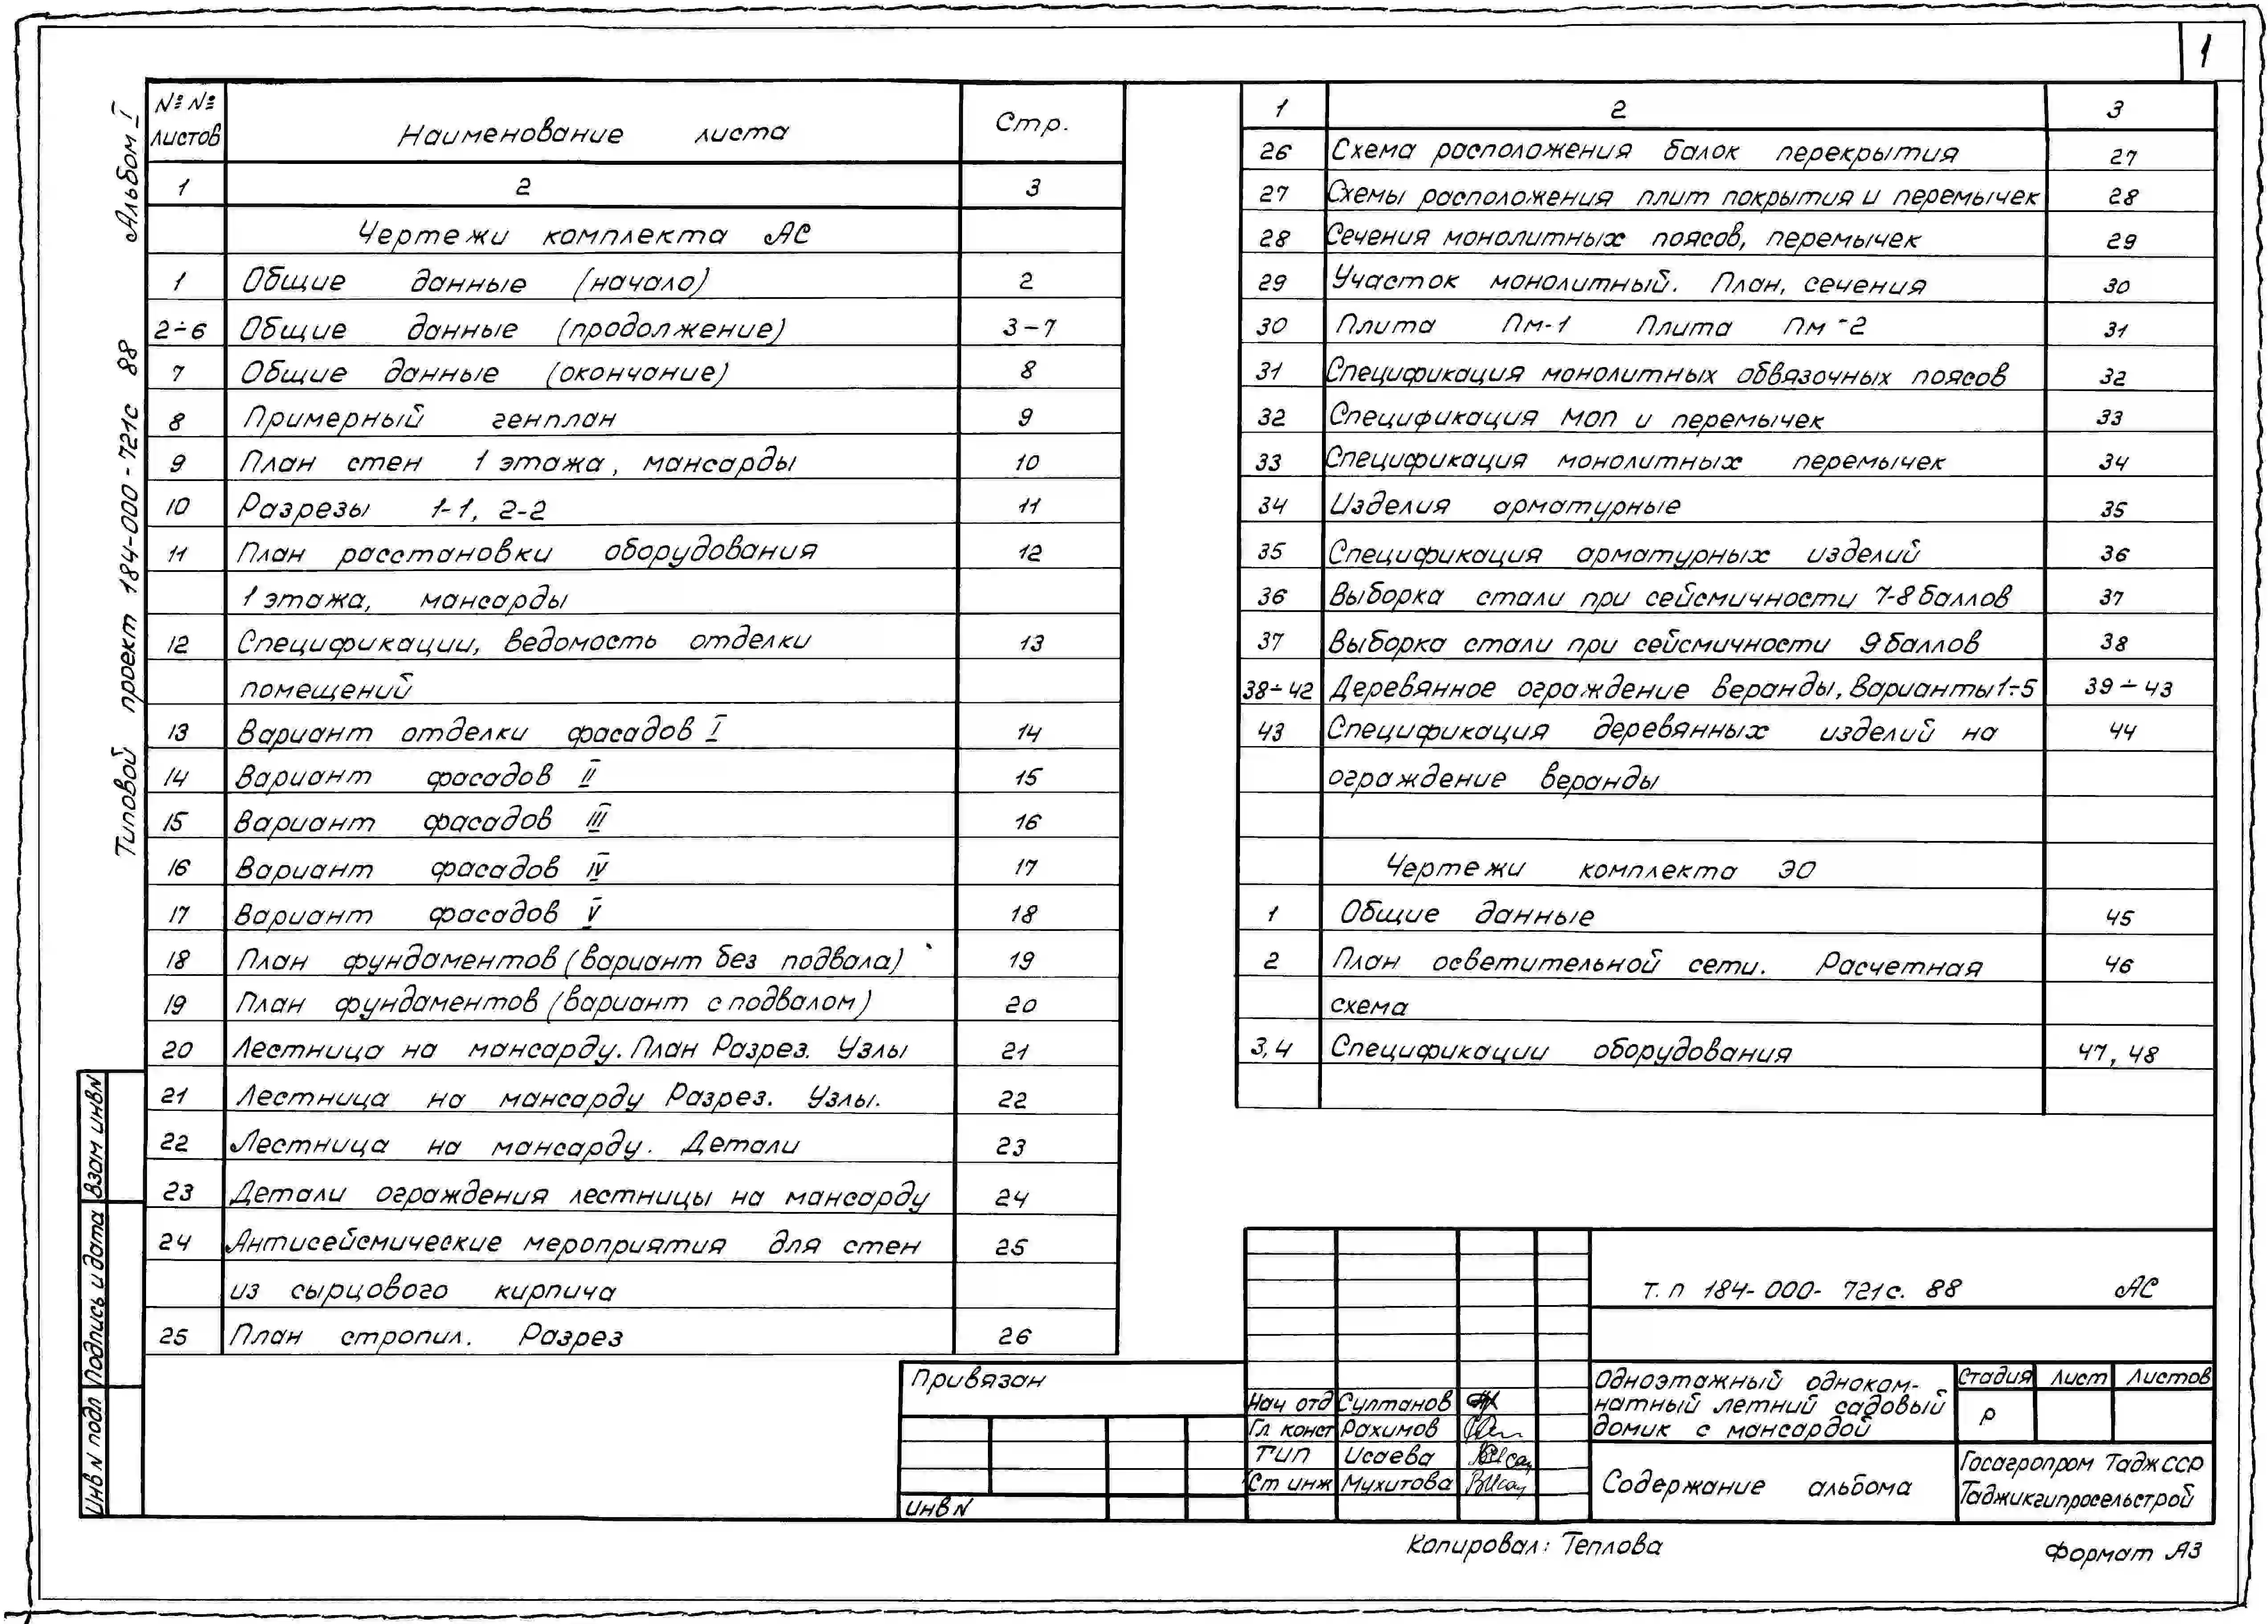 1
Альбом I
Типовой проект 184-000-721с 88
№№ листов Наименование листа Стр.
1 2 3
Чертежи комплекта АС
1 Общие данные (начало) 2
2÷6 Общие данные (продолжение) 3-7
7 Общие данные (окончание) 8
8 Примерный генплан 9
9 План стен 1 этажа, мансарды 10
10 Разрезы 1-1, 2-2 11
11 План расстановки оборудования 12
1 этажа, мансарды
12 Спецификации, ведомость отделки 13
помещений
13 Вариант отделки фасадов I 14
14 Вариант фасадов II 15
15 Вариант фасадов III 16
16 Вариант фасадов IV 17
17 Вариант фасадов V 18
18 План фундаментов (вариант без подвала) 19
19 План фундаментов (вариант с подвалом) 20
20 Лестница на мансарду. План Разрез. Узлы 21
21 Лестница на мансарду Разрез. Узлы. 22
22 Лестница на мансарду. Детали 23
23 Детали ограждения лестницы на мансарду 24
24 Антисейсмические мероприятия для стен 25
из сырцового кирпича
25 План стропил. Разрез 26
1 2 3
26 Схема расположения балок перекрытия 27
27 Схемы расположения плит покрытия и перемычек 28
28 Сечения монолитных поясов, перемычек 29
29 Участок монолитный. План, сечения 30
30 Плита Пм-1 Плита Пм-2 31
31 Спецификация монолитных обвязочных поясов 32
32 Спецификация моп и перемычек 33
33 Спецификация монолитных перемычек 34
34 Изделия арматурные 35
35 Спецификация арматурных изделий 36
36 Выборка стали при сейсмичности 7-8 баллов 37
37 Выборка стали при сейсмичности 9 баллов 38
38÷42 Деревянное ограждение веранды, Варианты 1÷5 39÷43
43 Спецификация деревянных изделий на 44
ограждение веранды
Чертежи комплекта ЭО
1 Общие данные 45
2 План осветительной сети. Расчетная 46
схема
3,4 Спецификации оборудования 47, 48
Взам инв N
Подпись и дата
Инв N подл
Привязан
инв N
Нач отд Султанов
Гл. конст Рахимов
ГИП Исаева
Ст инж Мухитова
т. п 184-000-721с. 88 АС
Одноэтажный одноком-
натный летний садовый
домик с мансардой
Стадия Лист Листов
Р
Содержание альбома
Госагропром ТаджССР
Таджикгипросельстрой
Копировал: Теплова
Формат А3